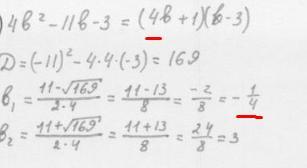 ) 4b² - 11b - 3 = (4b + 1)(b - 3)
D = (-11)² - 4·4·(-3) = 169
b₁ = (11-√169)/(2·4) = (11-13)/8 = -2/8 = -1/4
b₂ = (11+√169)/(2·4) = (11+13)/8 = 24/8 = 3